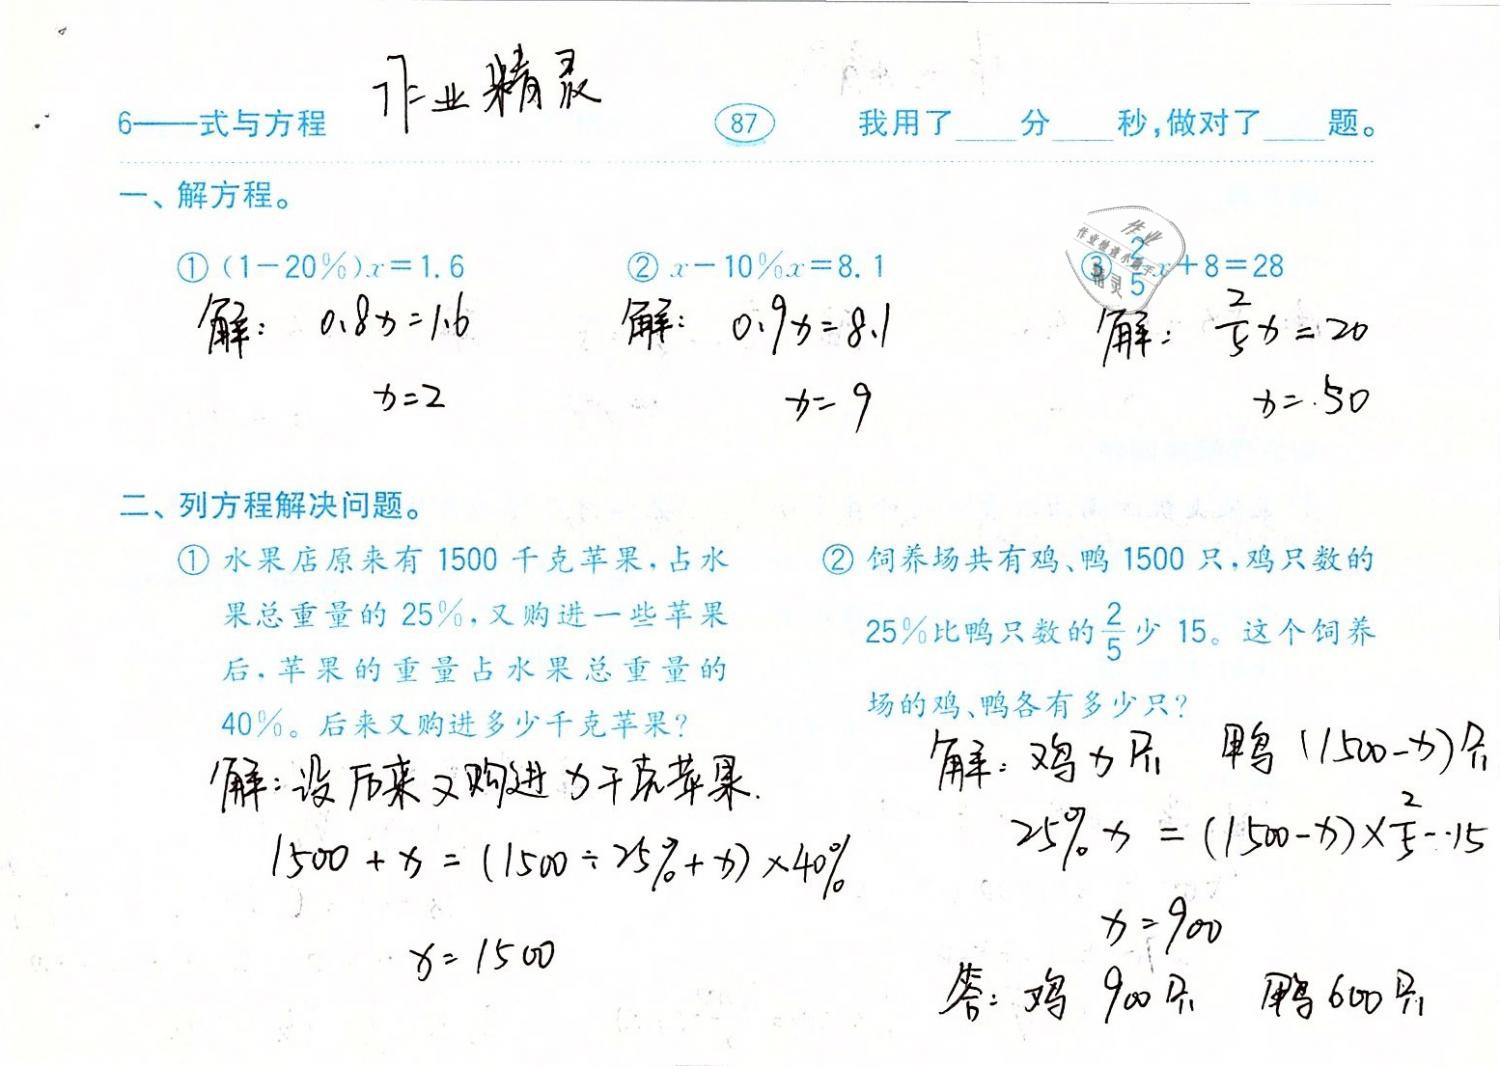 作业精灵
6——式与方程 87 我用了____分____秒,做对了____题。
一、解方程。
①(1-20%)x=1.6 ② x-10%x=8.1 ③ 2/5 x+8=28
作业
作业检查小助手
精灵
解: 0.8x=1.6 解: 0.9x=8.1 解: 2/5 x=20
x=2 x=9 x=50
二、列方程解决问题。
① 水果店原来有 1500 千克苹果,占水
果总重量的 25%,又购进一些苹果
后,苹果的重量占水果总重量的
40%。后来又购进多少千克苹果?
解:设后来又购进x千克苹果.
1500+x=(1500÷25%+x)×40%
x=1500
② 饲养场共有鸡、鸭 1500 只,鸡只数的
25%比鸭只数的 2/5 少 15。这个饲养
场的鸡、鸭各有多少只?
解:鸡x只 鸭(1500-x)只
25%x=(1500-x)×2/5-15
x=900
答:鸡900只 鸭600只